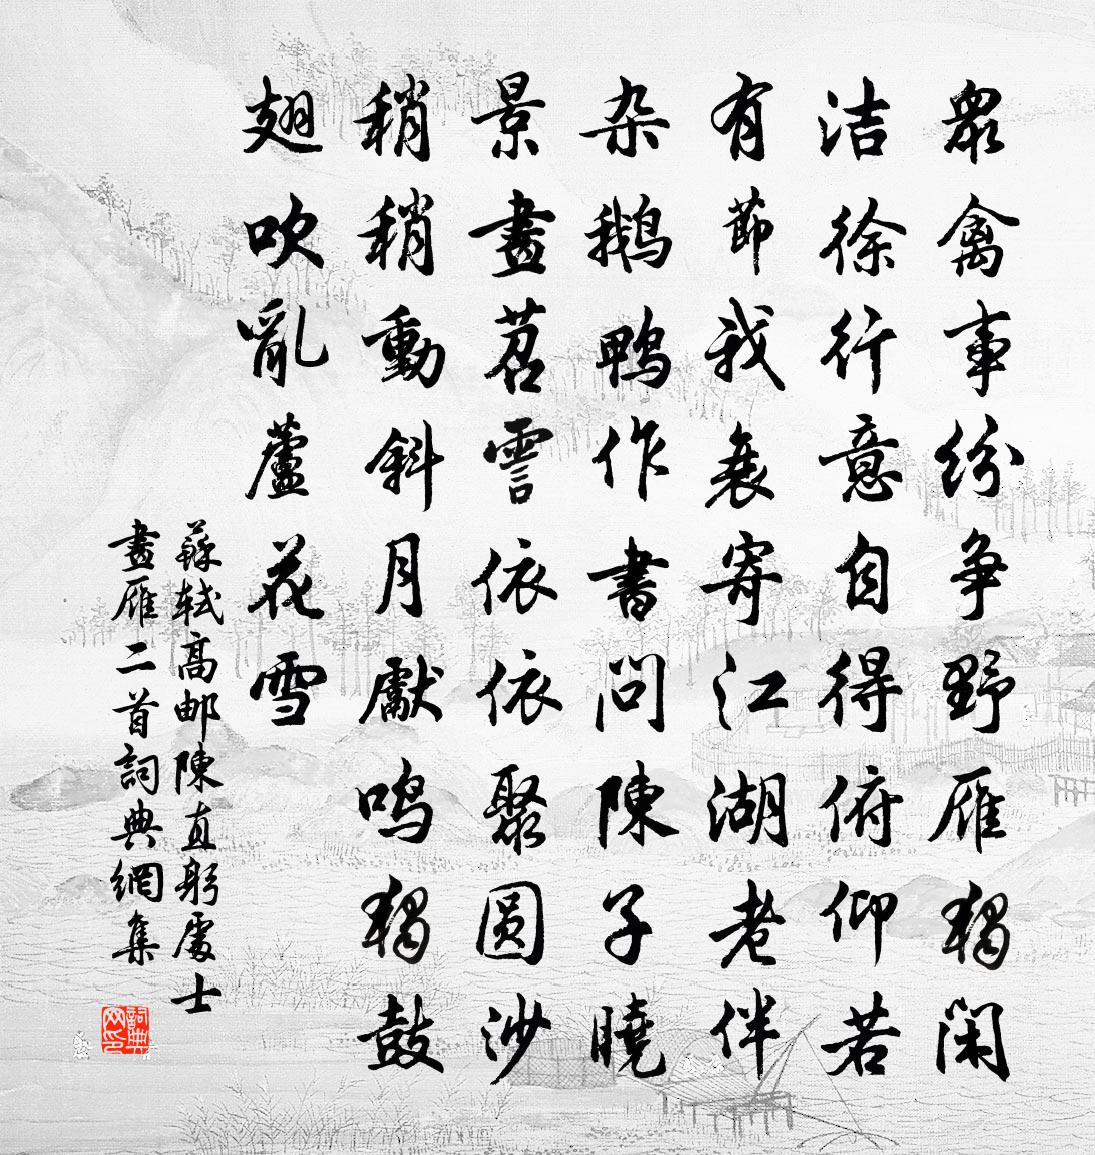 眾禽事紛争野雁獨闲
洁徐行意自得俯仰若
有節我衰寄江湖老伴
杂鵝鴨作書問陳子曉
景畫苕霅依依聚圆沙
稍稍動斜月獻鸣獨鼓
翅吹亂蘆花雪
蘇轼高邮陳直躬處士
畫雁二首詞典網集
詞典网印